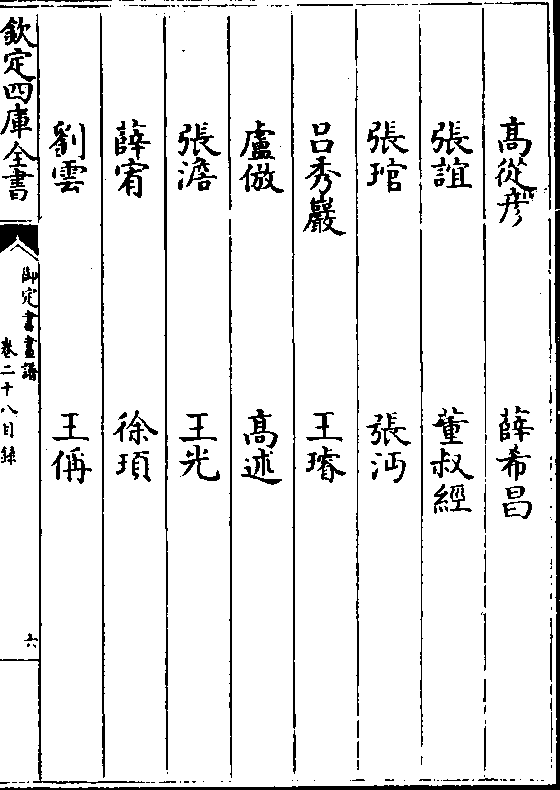 高從彦　薛希昌
張誼　董叔經
張琯　張沔
呂秀巖　王璿
盧倣　高述
張澹　王光
薛宥　徐頊
劉雲　王偁
欽定四庫全書
御定書畫譜
卷二十八目録
六